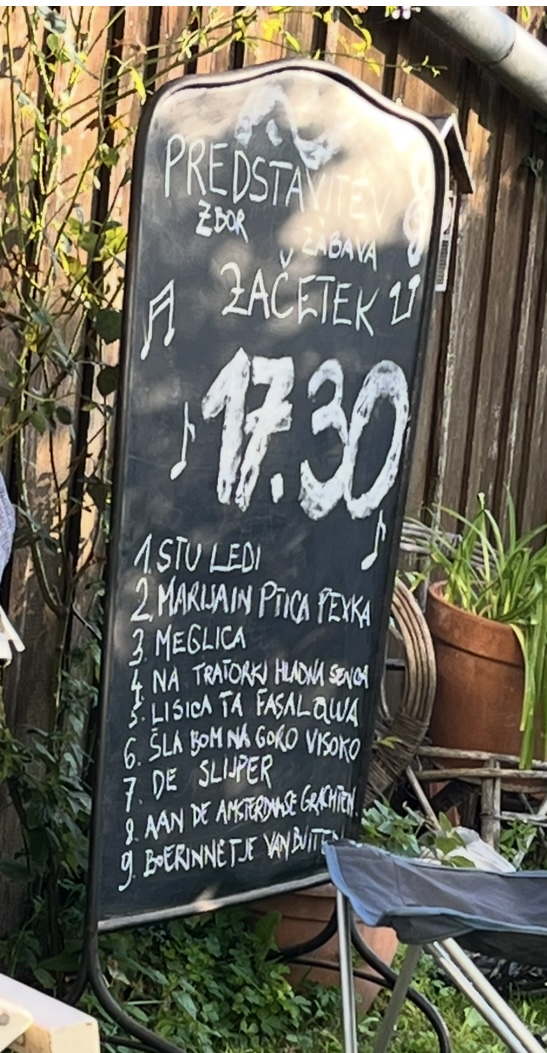 PREDSTAVITEV
ZBOR ZABAVA
ZAČETEK
17.30
1. STU LEDI
2. MARIJA IN PTICA PEVKA
3. MEGLICA
4. NA TRATORKI HLADNA SENCA
5. LISICA TA FASALOWA
6. ŠLA BOM NA GORO VISOKO
7. DE SLIJPER
8. AAN DE AMSTERDAMSE GRACHTEN
9. BOERINNETJE VAN BUITEN